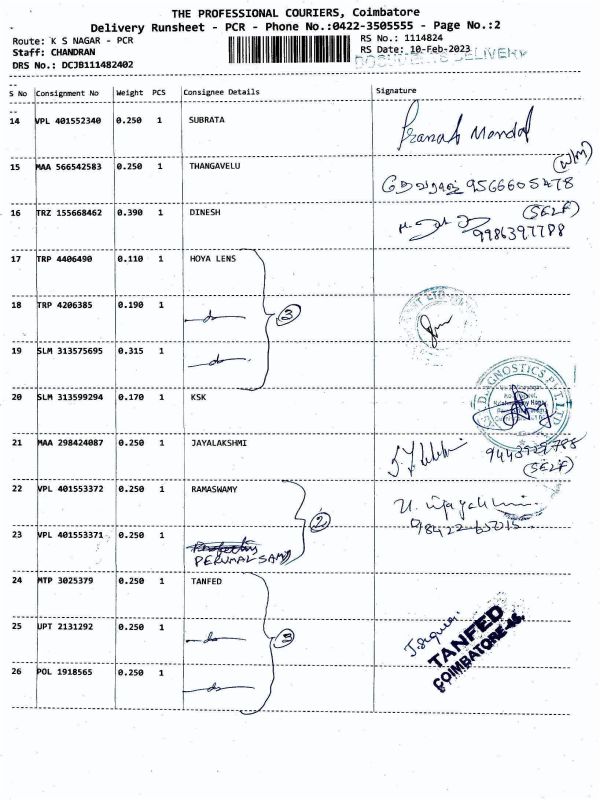 THE PROFESSIONAL COURIERS, Coimbatore
Delivery Runsheet - PCR - Phone No.:0422-3505555 - Page No.:2
Route: K S NAGAR - PCR RS No.: 1114824
Staff: CHANDRAN RS Date: 10-Feb-2023
DRS No.: DCJB111482402 DOCUMENTS DELIVERY
S No Consignment No Weight PCS Consignee Details Signature
14 VPL 401552340 0.250 1 SUBRATA Pranab Mondal
15 MAA 566542583 0.250 1 THANGAVELU (W/M)
9566605478
16 TRZ 155668462 0.390 1 DINESH (SELF)
9986397788
17 TRP 4406490 0.110 1 HOYA LENS
18 TRP 4206385 0.190 1 -do- 3
19 SLM 313575695 0.315 1 -do-
20 SLM 313599294 0.170 1 KSK DIAGNOSTICS PVT LTD
21 MAA 298424087 0.250 1 JAYALAKSHMI
(SELF)
22 VPL 401553372 0.250 1 RAMASWAMY
2
23 VPL 401553371 0.250 1
PERUMAL SAMY
24 MTP 3025379 0.250 1 TANFED
25 UPT 2131292 0.250 1 -do- 3 TANFED
COIMBATORE-46.
26 POL 1918565 0.250 1 -do-